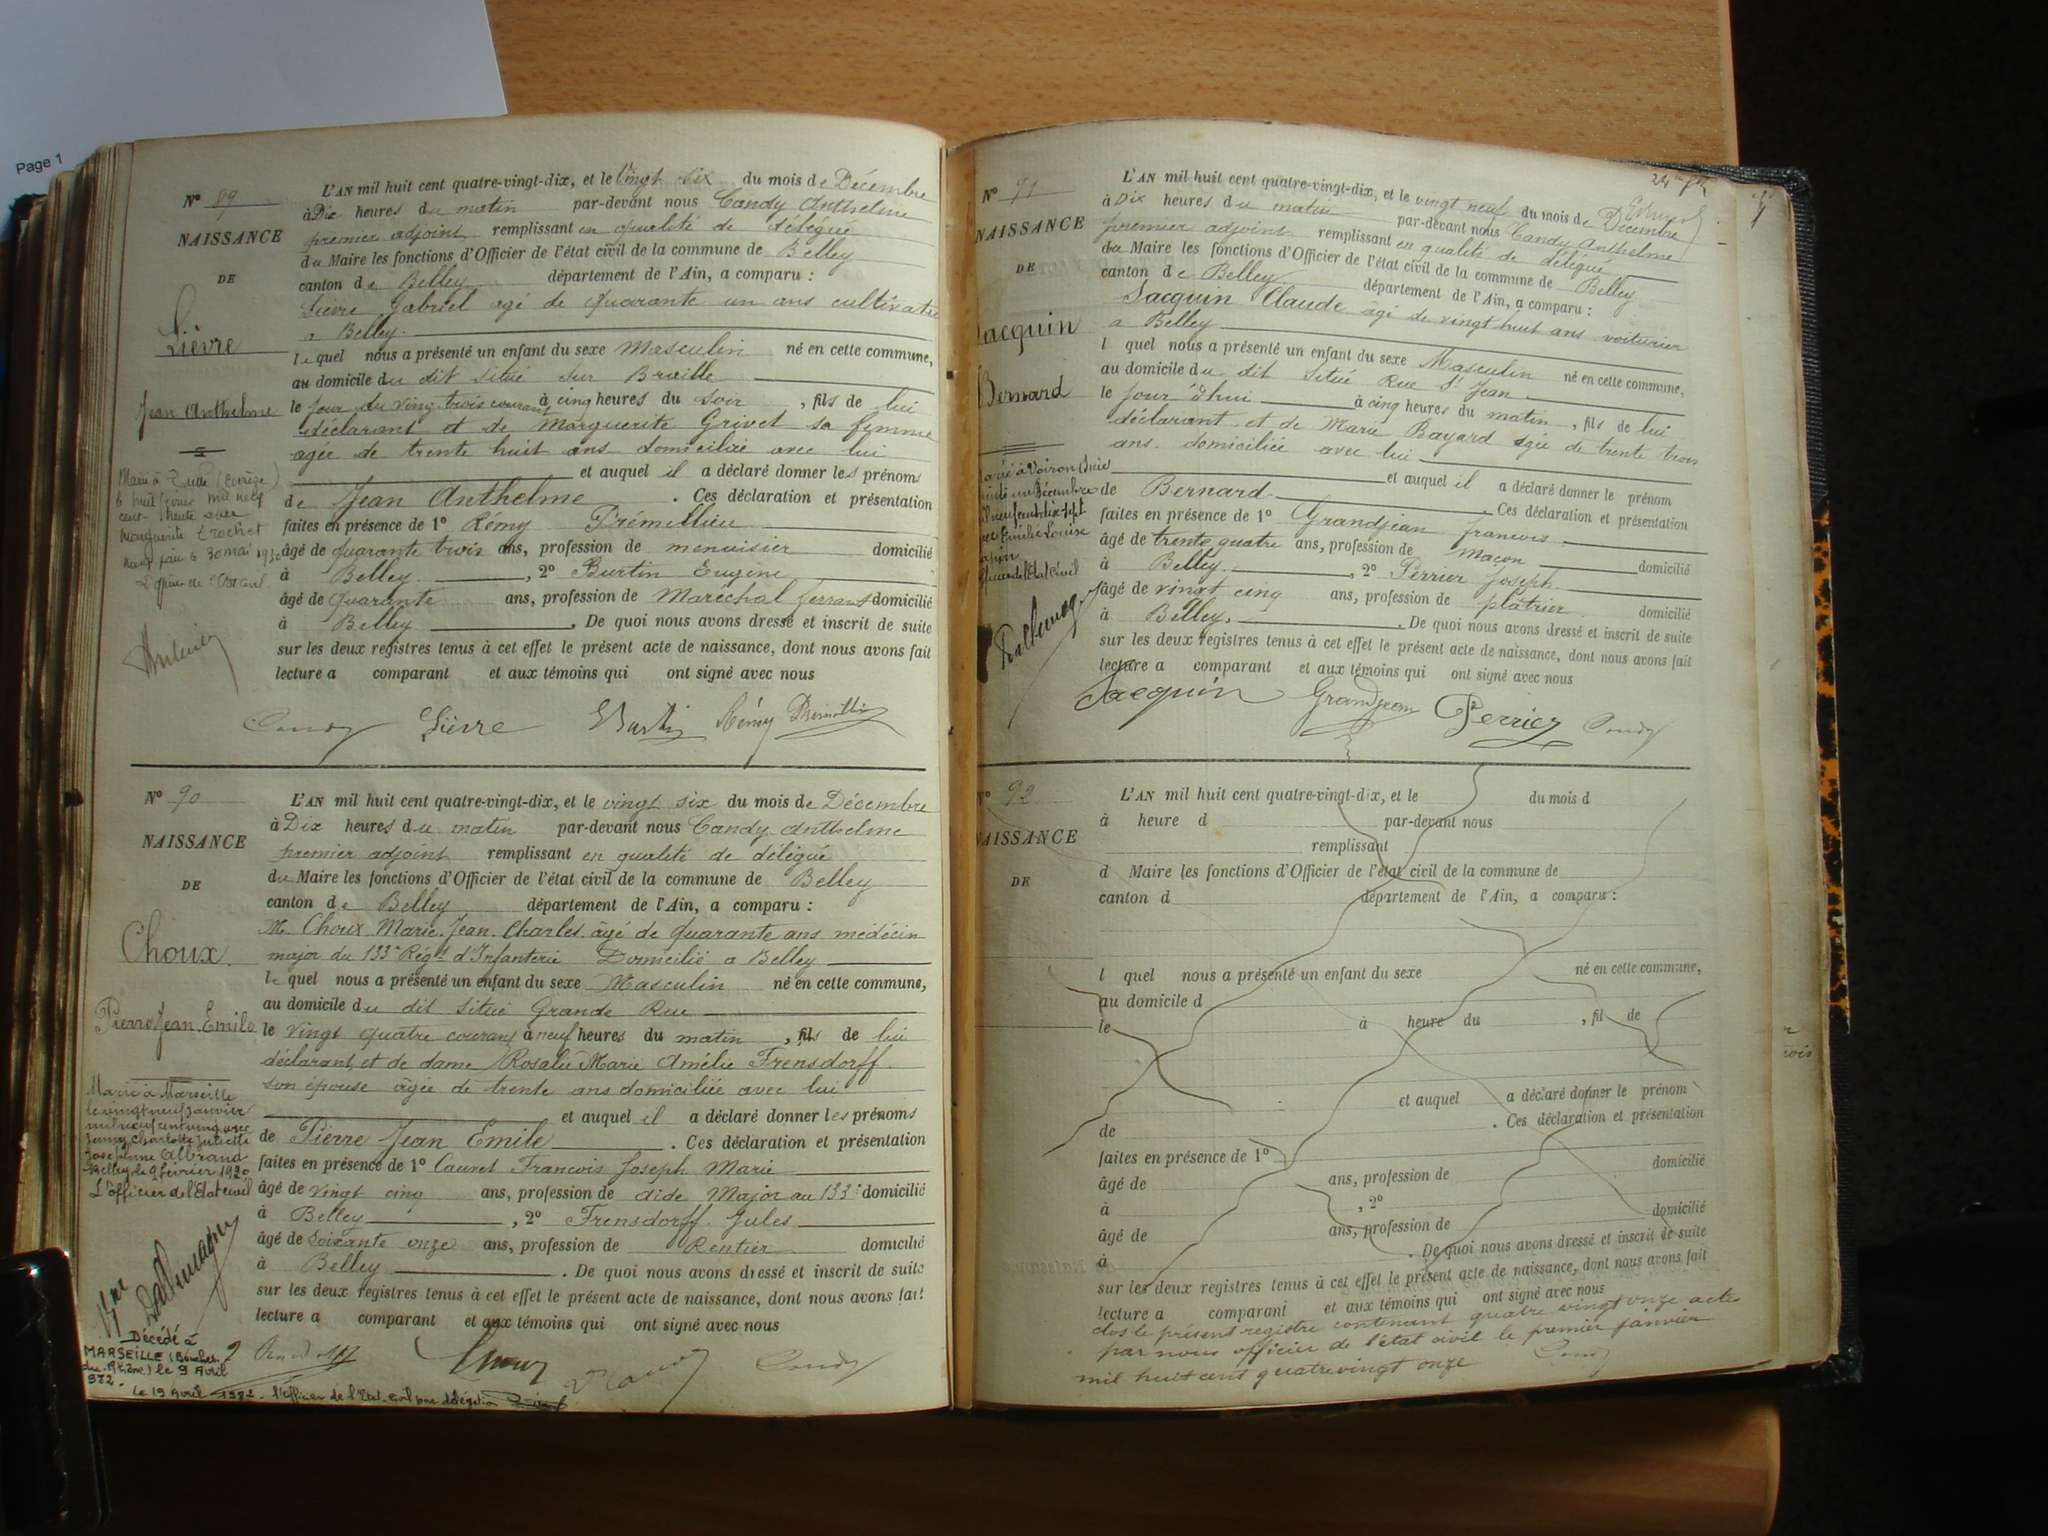 Page 1
N° 89
NAISSANCE
DE
Lièvre
Jean Anthelme
Marié à
mil neuf
cent trente avec
Marguerite Trochet
30 mai 1930
L'AN mil huit cent quatre-vingt-dix, et le vingt six du mois de Décembre
à Dix heures du matin par-devant nous Candy Anthelme
premier adjoint remplissant en qualité de délégué
du Maire les fonctions d'Officier de l'état civil de la commune de Belley
canton de Belley département de l'Ain, a comparu :
Lièvre Gabriel agé de Quarante un ans cultivateur
a Belley.
lequel nous a présenté un enfant du sexe Masculin né en cette commune,
au domicile du dit situé sur Braille
le jour du vingt trois courant à cinq heures du soir, fils de lui
déclarant et de Marguerite Grivet sa femme
agée de trente huit ans domiciliée avec lui
et auquel il a déclaré donner les prénoms
de Jean Anthelme. Ces déclaration et présentation
faites en présence de 1° Rémy Prémillieu
âgé de quarante trois ans, profession de menuisier domicilié
à Belley, 2° Burtin Eugène
âgé de Quarante ans, profession de Maréchal ferrant domicilié
à Belley. De quoi nous avons dressé et inscrit de suite
sur les deux registres tenus à cet effet le présent acte de naissance, dont nous avons fait
lecture a comparant et aux témoins qui ont signé avec nous
Candy Lièvre Burtin Rémy Prémillieu
N° 90
NAISSANCE
DE
Choux
Pierre Jean Emile
Marié à Marseille
le vingt neuf janvier
mil neuf cent vingt avec
Jenny Charlotte Juliette
Joséphine Albrand
Belley le 9 février 1920
L'officier de l'Etat civil
Dallemagne
Décédé à
MARSEILLE (Bouches
du Rhône) le 9 Avril
1972.
Le 19 Avril 1972. L'officier de l'Etat-Civil par délégation
L'AN mil huit cent quatre-vingt-dix, et le vingt six du mois de Décembre
à Dix heures du matin par-devant nous Candy Anthelme
premier adjoint remplissant en qualité de délégué
du Maire les fonctions d'Officier de l'état civil de la commune de Belley
canton de Belley département de l'Ain, a comparu :
M. Choux Marie Jean Charles âgé de quarante ans médecin
major du 133e Régt d'Infanterie Domicilié a Belley
lequel nous a présenté un enfant du sexe Masculin né en cette commune,
au domicile du dit situé Grande Rue
le vingt quatre courant à neuf heures du matin, fils de lui
déclarant et de dame Rosalie Marie Amélie Frensdorff
son épouse âgée de trente ans domiciliée avec lui
et auquel il a déclaré donner les prénoms
de Pierre Jean Emile. Ces déclaration et présentation
faites en présence de 1° Cauret Francois Joseph Marie
âgé de vingt cinq ans, profession de aide Major au 133e domicilié
à Belley, 2° Frensdorff Jules
âgé de Soixante onze ans, profession de Rentier domicilié
à Belley. De quoi nous avons dressé et inscrit de suite
sur les deux registres tenus à cet effet le présent acte de naissance, dont nous avons fait
lecture a comparant et aux témoins qui ont signé avec nous
Candy
N° 91
NAISSANCE
DE
Jacquin
Bernard
Marié à Voiron (Isère)
Décembre
mil neuf cent dix sept
avec Emélie Louise
Officier de l'Etat Civil
Dallemagne
L'AN mil huit cent quatre-vingt-dix, et le vingt neuf du mois de Décembre
à Dix heures du matin par-devant nous Candy Anthelme
premier adjoint remplissant en qualité de délégué
du Maire les fonctions d'Officier de l'état civil de la commune de Belley
canton de Belley département de l'Ain, a comparu :
Jacquin Claude âgé de vingt huit ans voiturier
a Belley
l quel nous a présenté un enfant du sexe Masculin né en cette commune,
au domicile du dit situé Rue St Jean
le jour d'hui à cinq heures du matin, fils de lui
déclarant et de Marie Bayard agée de trente trois
ans domiciliée avec lui
et auquel il a déclaré donner le prénom
de Bernard. Ces déclaration et présentation
faites en présence de 1° Grandjean francois
âgé de trente quatre ans, profession de Maçon domicilié
à Belley, 2° Perrier Joseph
âgé de vingt cinq ans, profession de plâtrier domicilié
à Belley. De quoi nous avons dressé et inscrit de suite
sur les deux registres tenus à cet effet le présent acte de naissance, dont nous avons fait
lecture a comparant et aux témoins qui ont signé avec nous
Jacquin Grandjean Perrier Candy
N° 92
NAISSANCE
DE
L'AN mil huit cent quatre-vingt-dix, et le du mois d
à heure d par-devant nous
remplissant
d Maire les fonctions d'Officier de l'état civil de la commune de
canton d département de l'Ain, a comparu :
l quel nous a présenté un enfant du sexe né en cette commune,
au domicile d
le à heure du , fil de
et auquel a déclaré donner le prénom
de . Ces déclaration et présentation
faites en présence de 1°
âgé de ans, profession de domicilié
à , 2°
âgé de ans, profession de domicilié
à . De quoi nous avons dressé et inscrit de suite
sur les deux registres tenus à cet effet le présent acte de naissance, dont nous avons fait
lecture a comparant et aux témoins qui ont signé avec nous
clos le présent registre contenant quatre vingt onze actes
par nous officier de l'état civil le premier janvier
mil huit cent quatre vingt onze
Candy